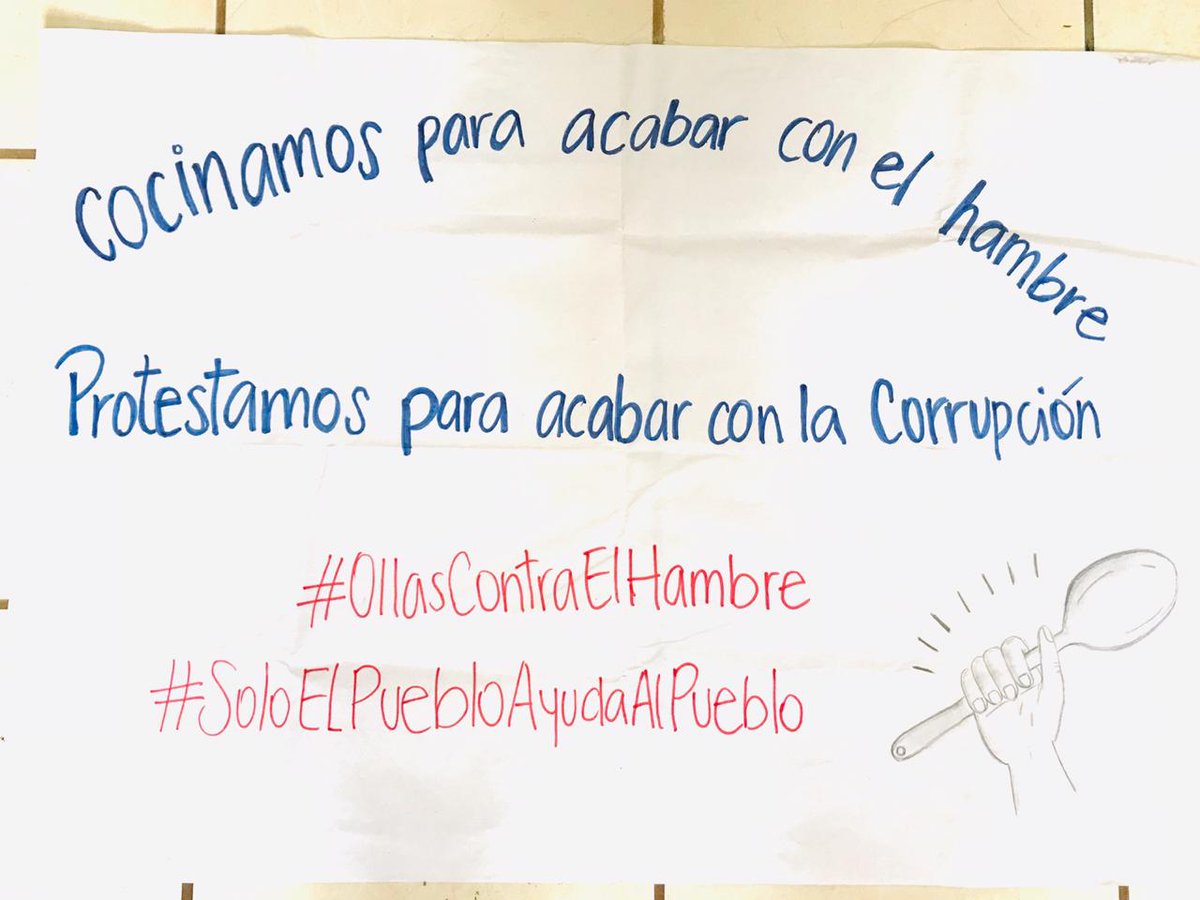 cocinamos para acabar con el hambre
Protestamos para acabar con la Corrupción
#OllasContraElHambre
#SoloELPuebloAyudaAlPueblo